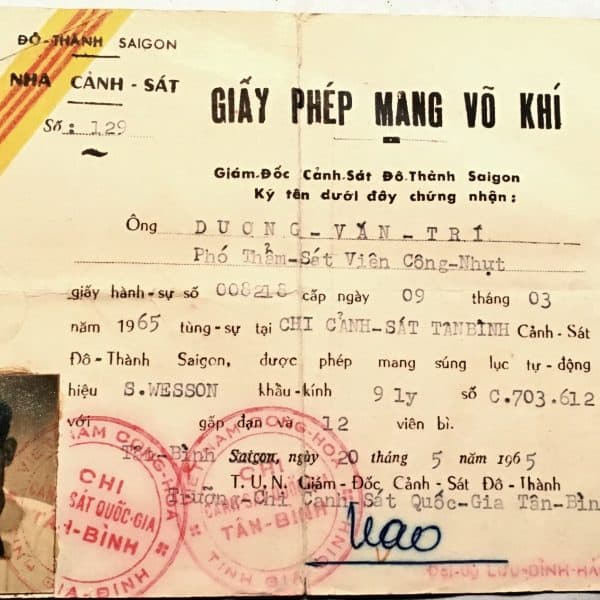 ĐÔ-THÀNH SAIGON
NHA CẢNH-SÁT
Số: 129
GIẤY PHÉP MANG VÕ KHÍ
Giám-Đốc Cảnh-Sát Đô-Thành Saigon
Ký tên dưới đây chứng nhận:
Ông DUONG-VĂN-TRÍ
Phó Thẩm-Sát Viên Công-Nhựt
giấy hành-sự số 008218 cấp ngày 09 tháng 03
năm 1965 tùng-sự tại CHI CẢNH-SÁT TANBÌNH Cảnh-Sát
Đô-Thành Saigon, được phép mang súng lục tự-động
hiệu S.WESSON khẩu-kính 9 ly số C.703.612
với gắp đạn và 12 viên bì.
Tân-Bình Saigon, ngày 20 tháng 5 năm 1965
T.U.N. Giám-Đốc, Cảnh-Sát Đô-Thành
Trưởng-Chi Cảnh Sát Quốc-Gia Tân-Bìn
CHI
SÁT QUỐC-GIA
TÂN-BÌNH
GIA-ĐỊNH
VIỆT-NAM CỘNG-HÒA
CHI
TÂN-BÌNH
TỈNH GIA ĐỊNH
Đại-úy LƯU-ĐÌNH